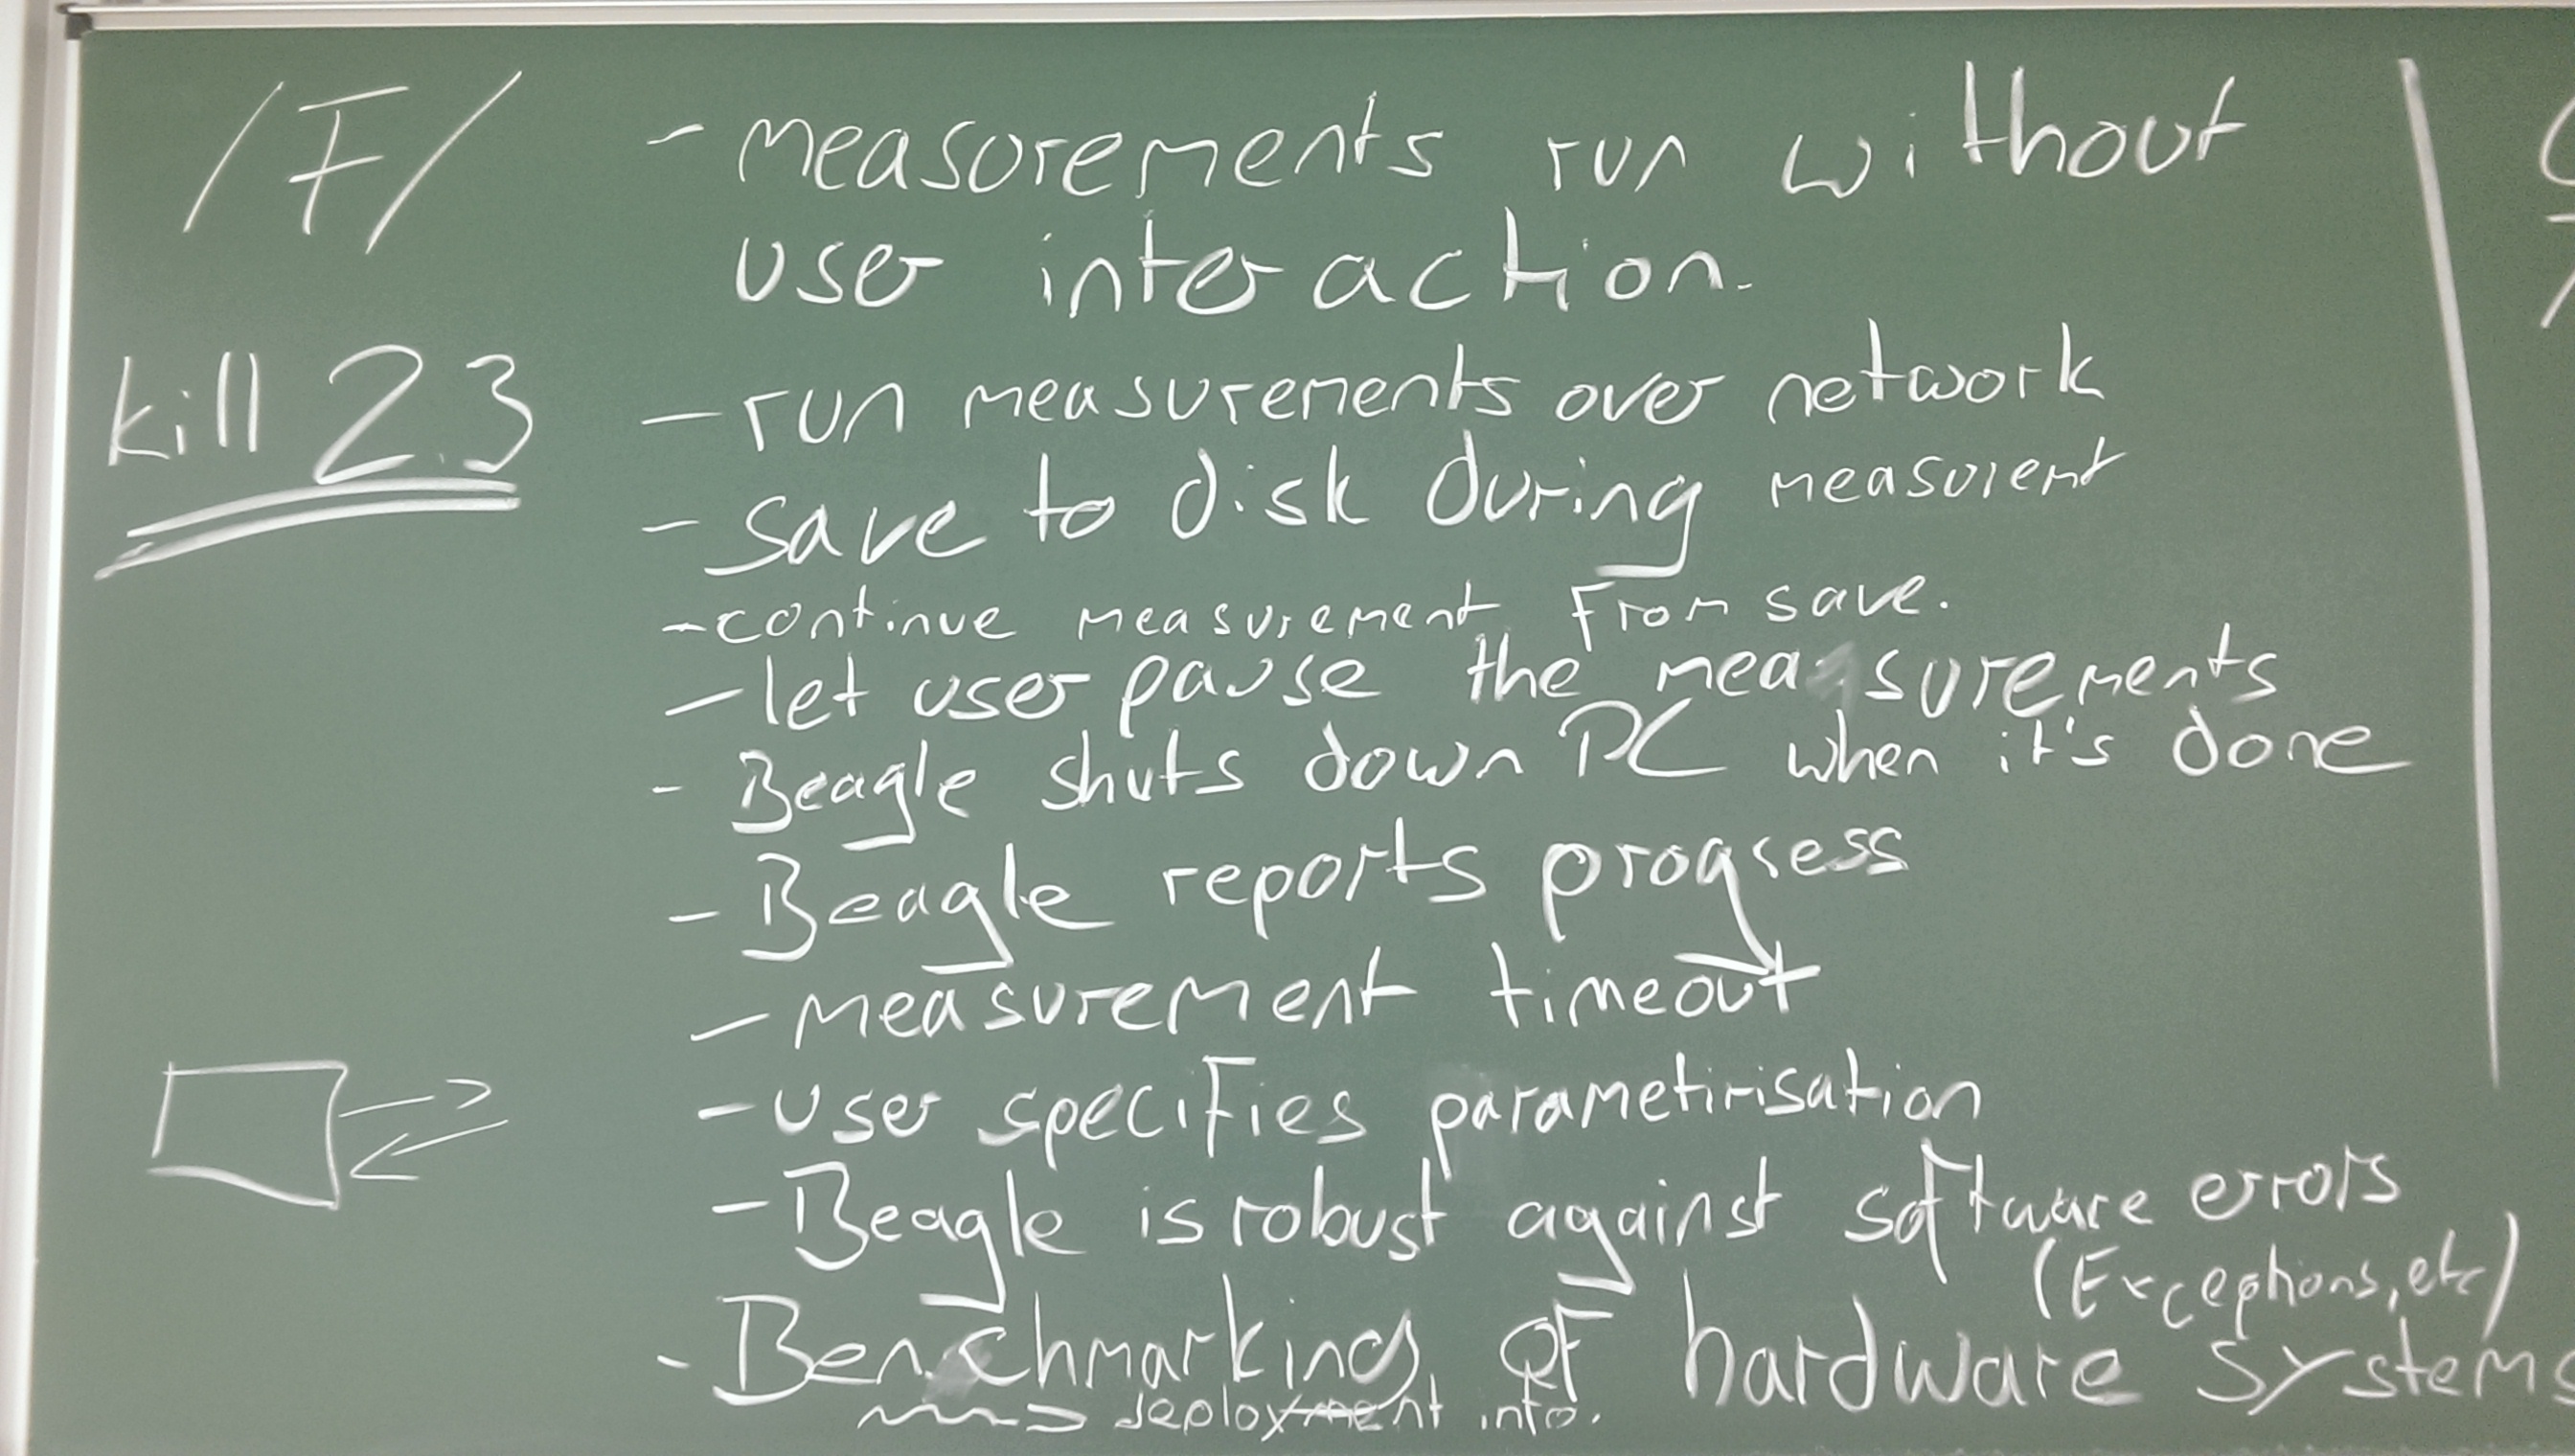 /F/
- measurements run without
user interaction.
kill 2.3
- run measurements over network
- save to disk during measurement
- continue measurement from save.
- let user pause the measurements
- Beagle shuts down PC when it's done
- Beagle reports progress
- measurement timeout
- user specifies parametirisation
- Beagle is robust against software errors
(Exceptions, etc)
- Benchmarking of hardware systems
deployment info.